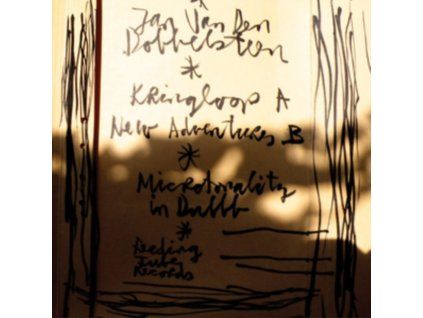 *
Jan Van Den
Dobbelsteen
*
Kringloop A
New Adventures B
*
Microtonality
in
*
Feeding
Tube
Records